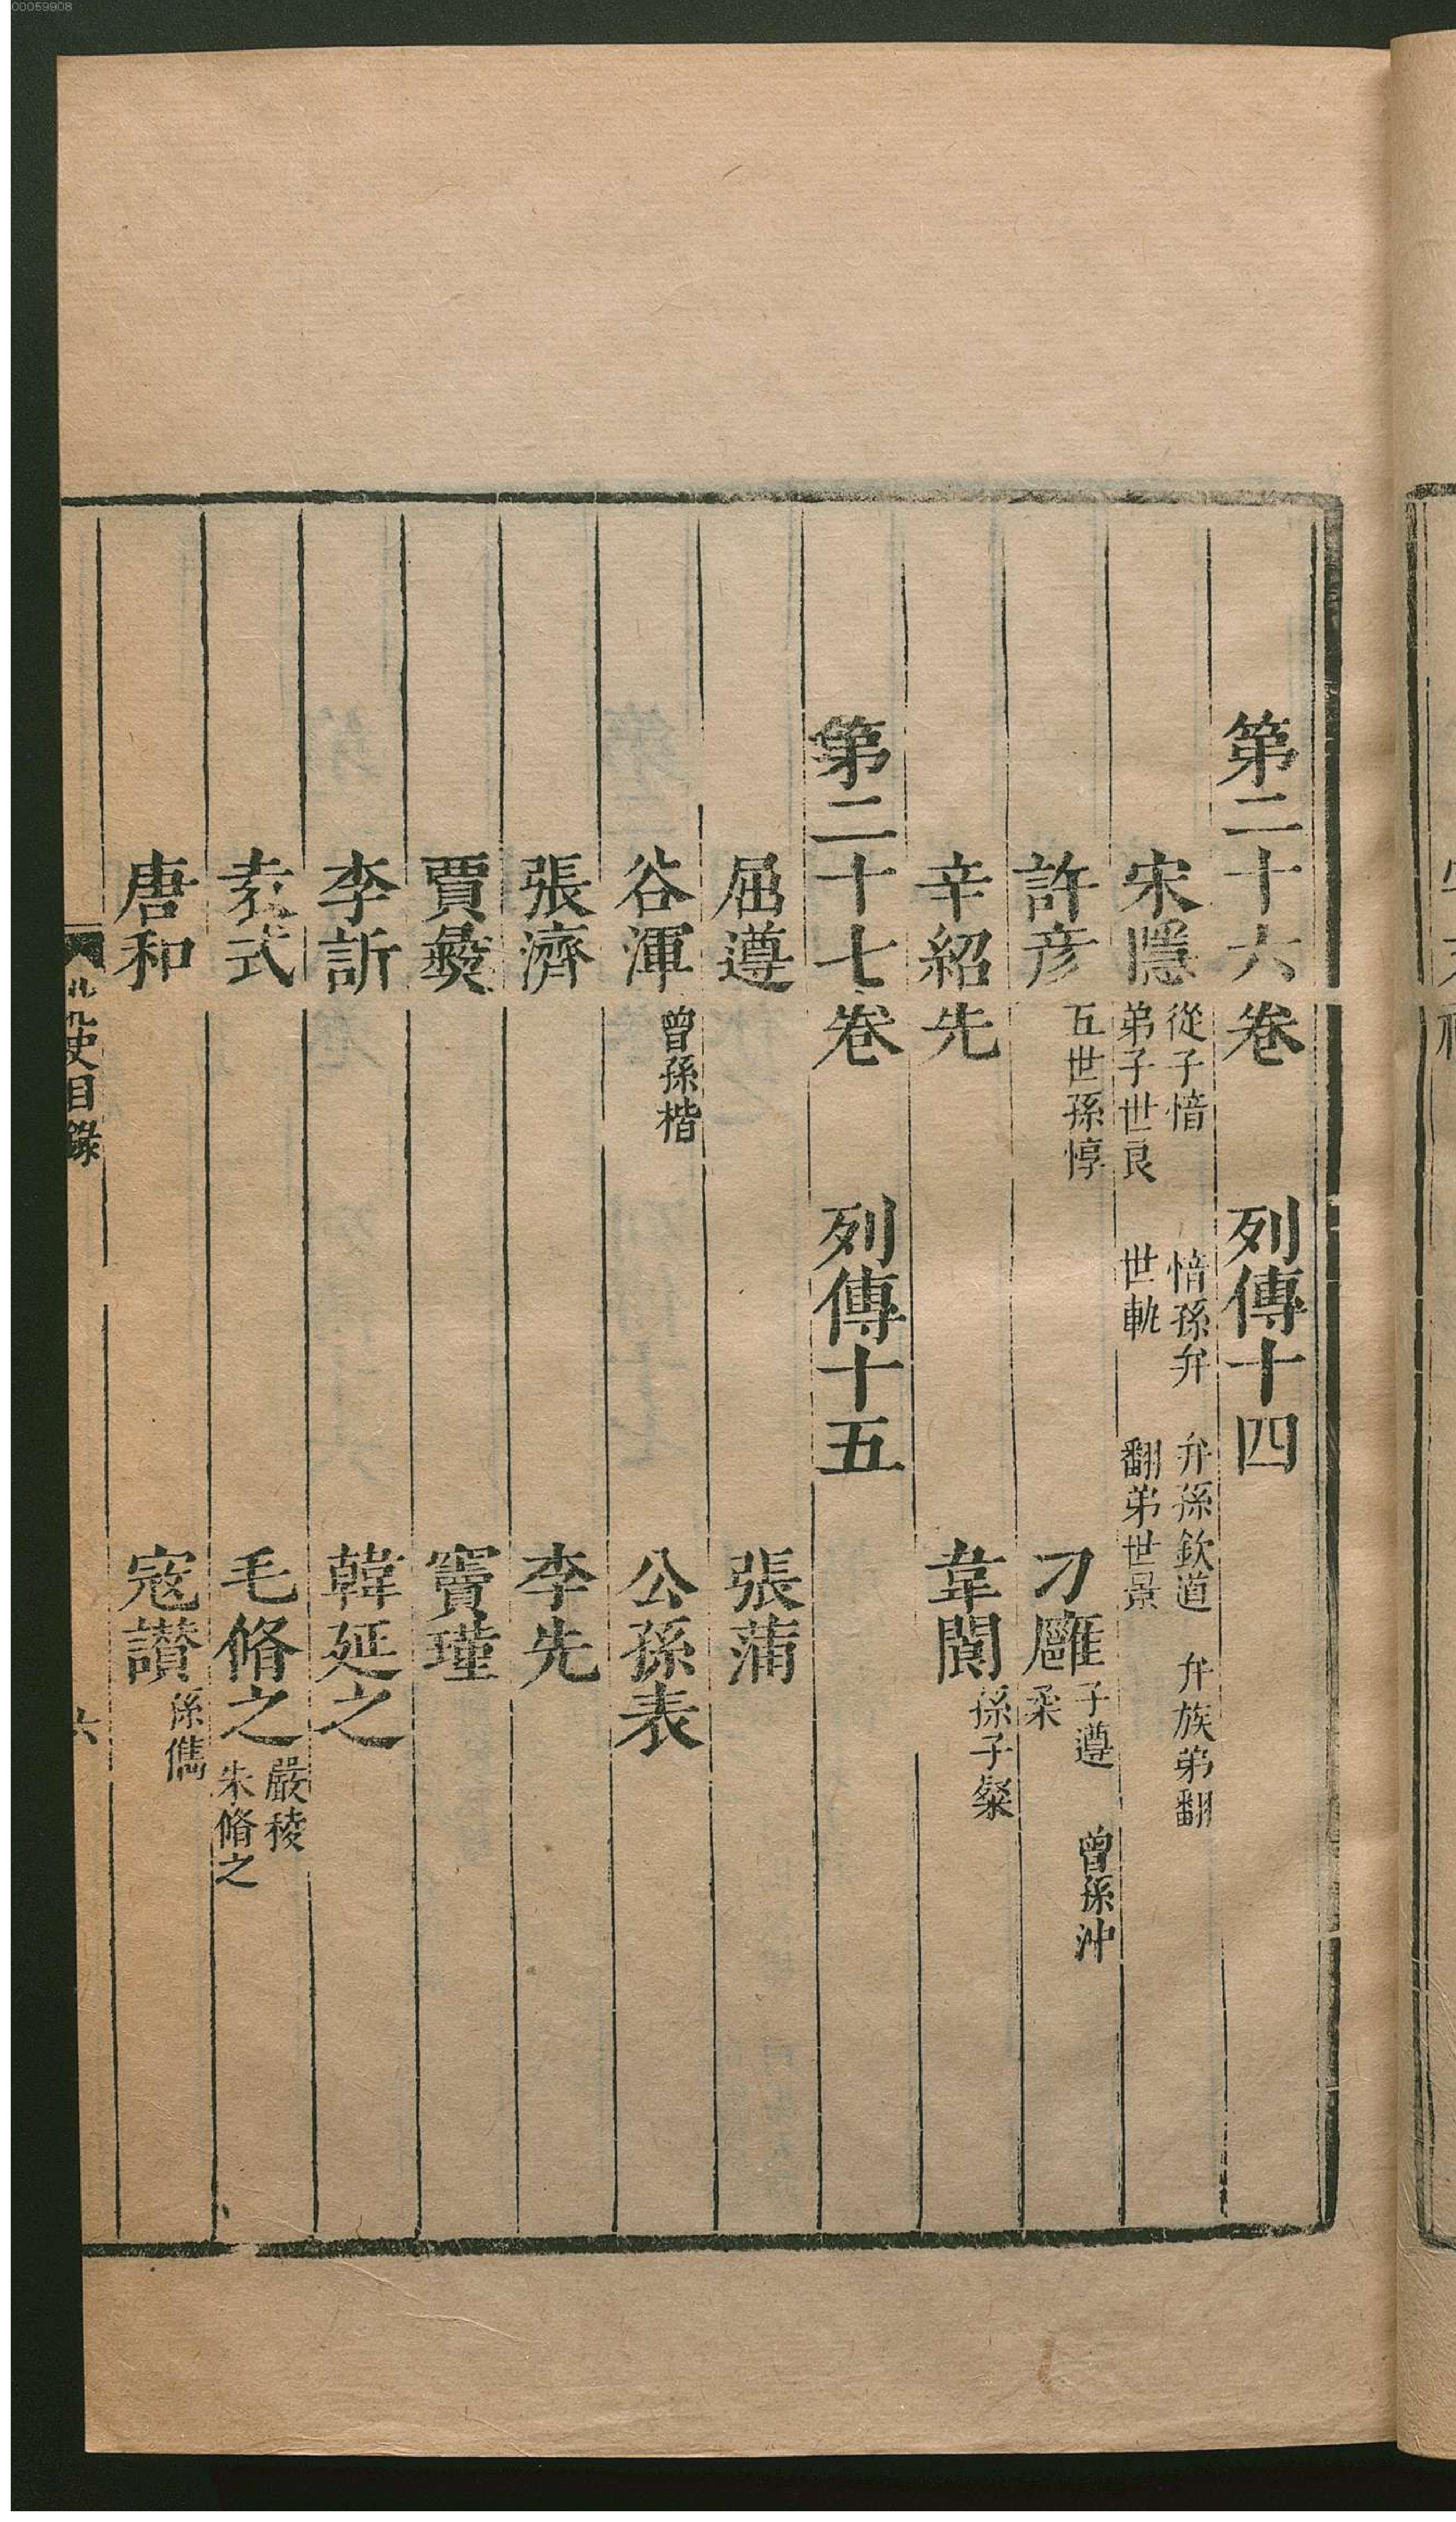 00059908
第二十六卷 列傳十四
宋隱 從子愔 愔孫弁 弁孫欽道 弁族弟翻
弟子世良 世軌 翻弟世景
許彥 五世孫惇 刁雝 子遵 曾孫沖
柔
辛紹先 韋閬 孫子粲
第二十七卷 列傳十五
屈遵 張蒲
谷渾 曾孫楷 公孫表
張濟 李先
賈彝 竇瑾
李訢 韓延之
袁式 毛脩之 嚴稜
朱脩之
唐和 寇讚 孫儁
北史目錄 六